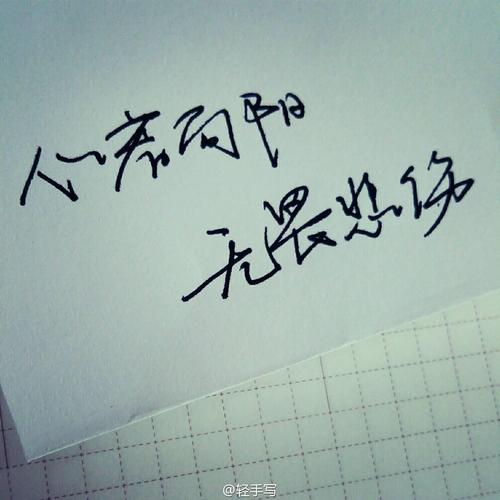 心若向阳
无畏悲伤
@轻手写